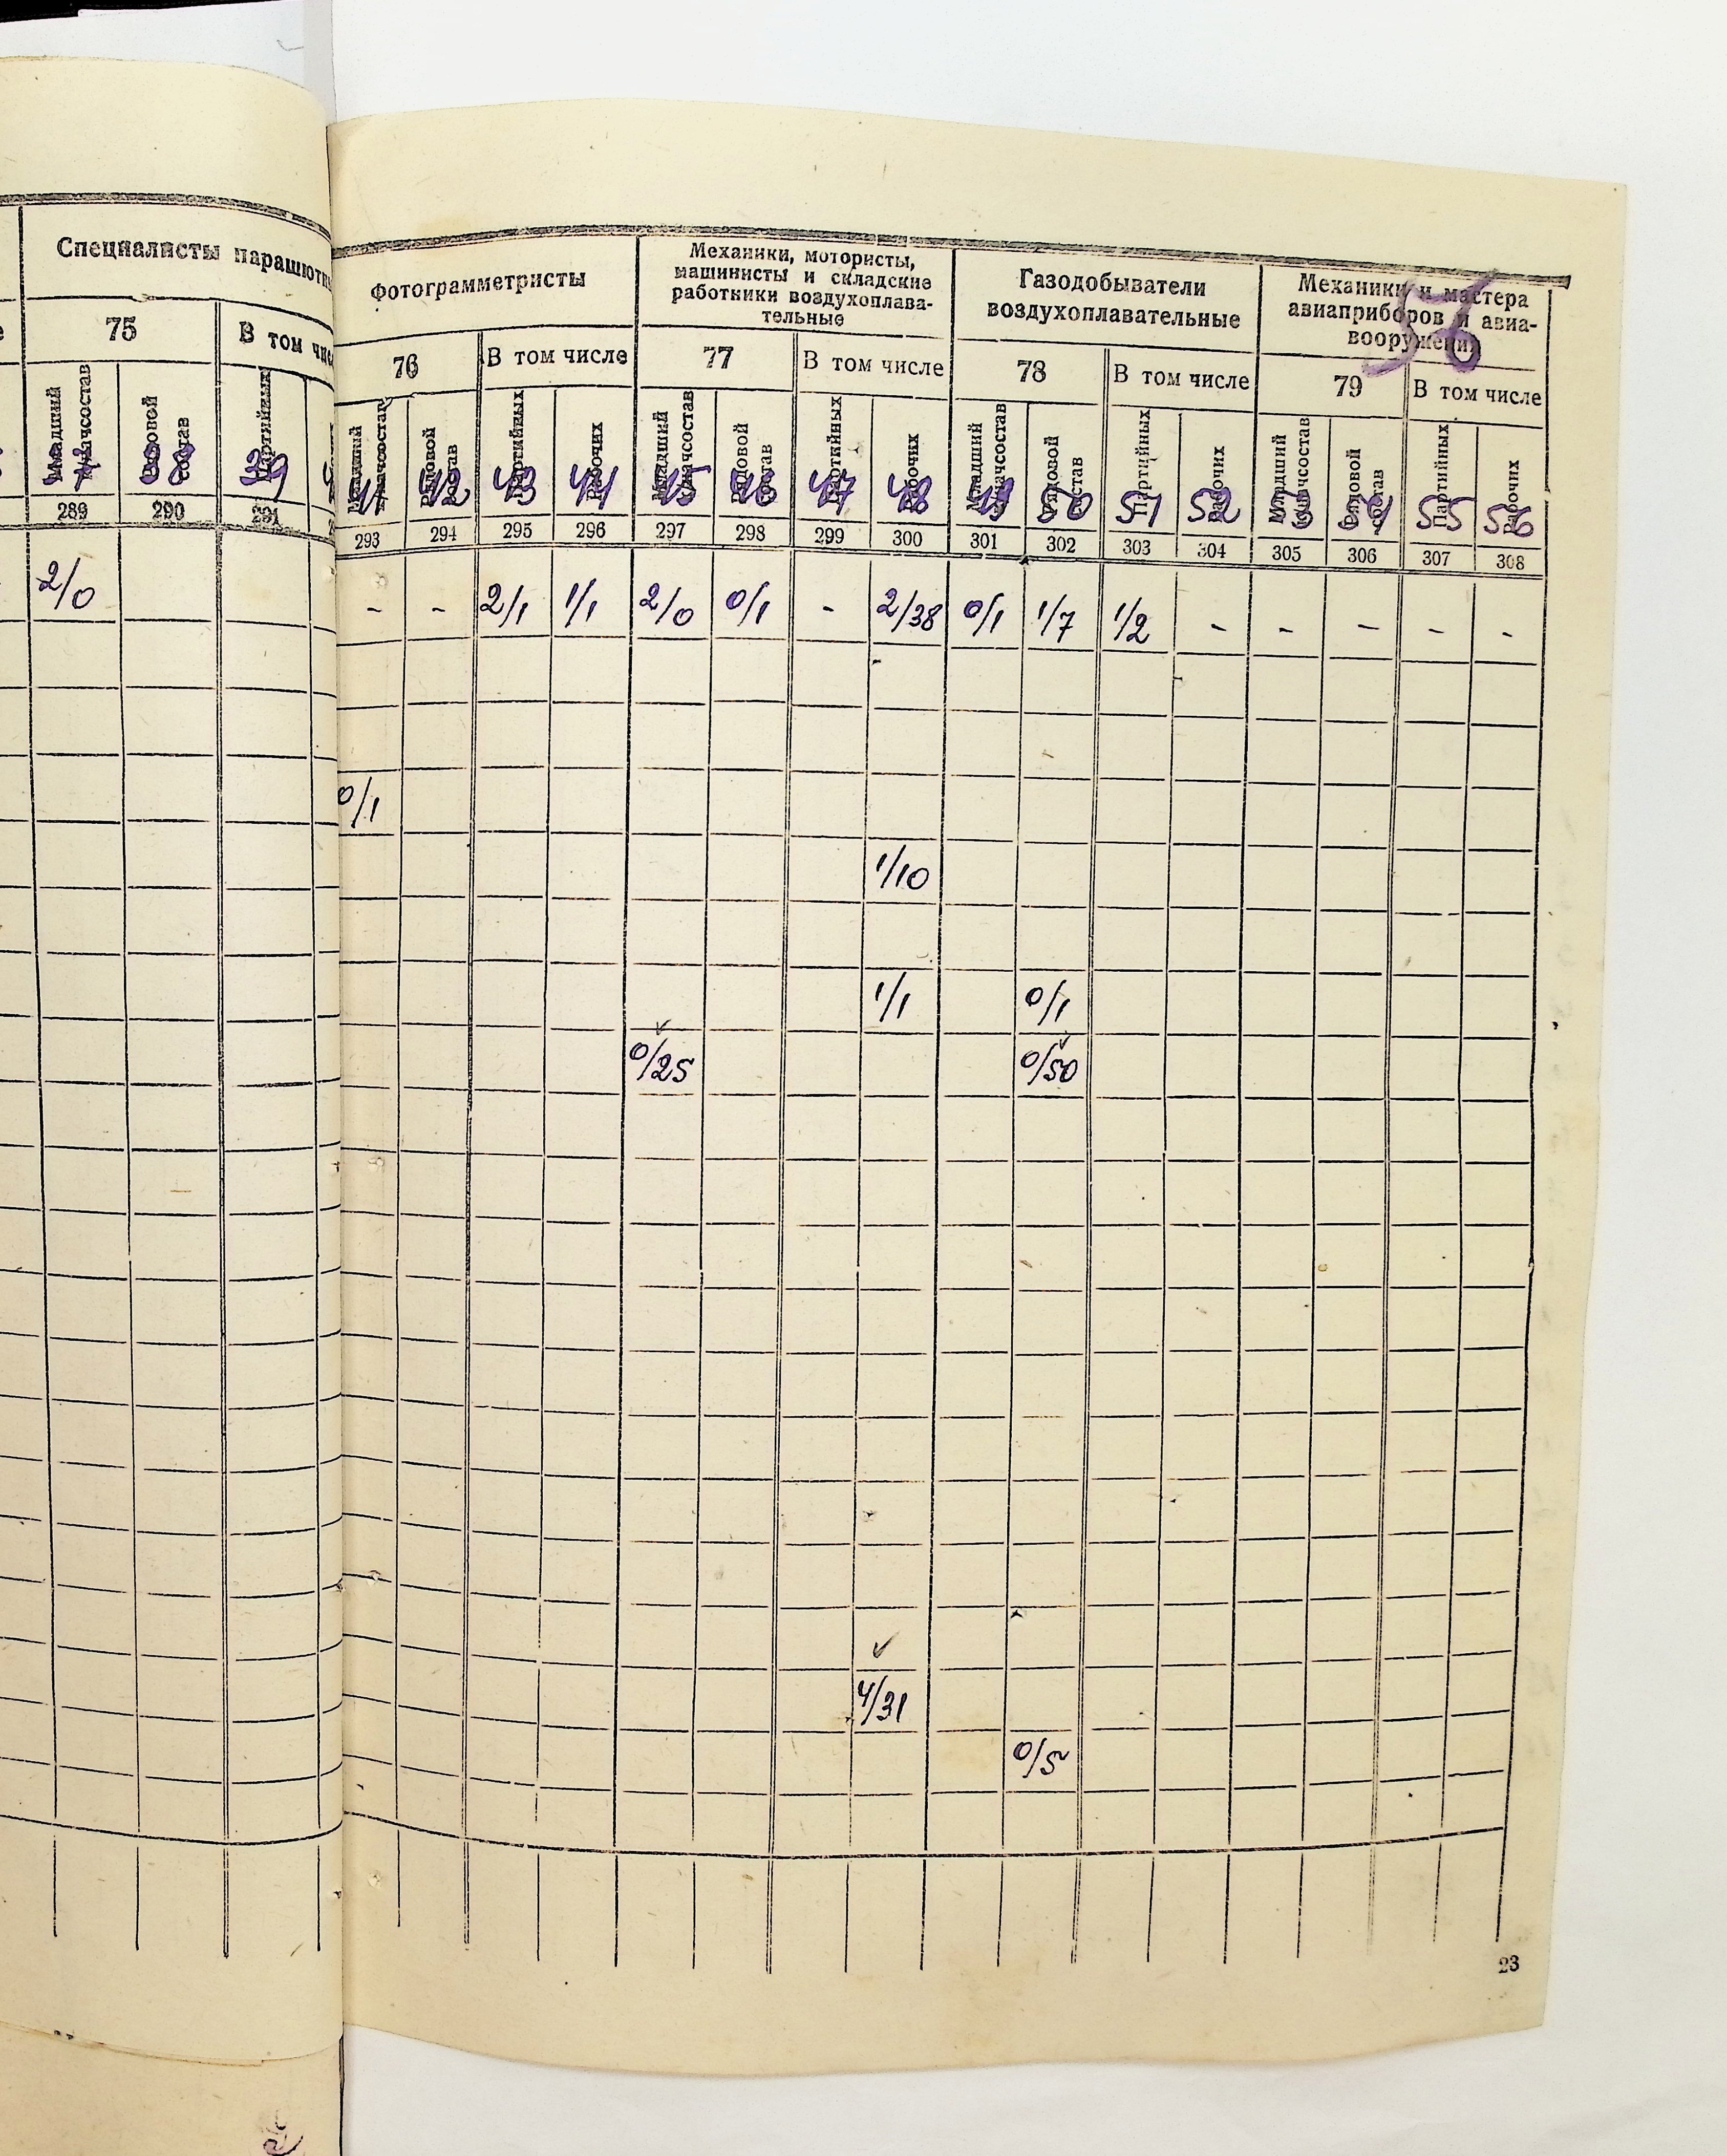 56
Специалисты парашютн
Фотограмметристы
Механики, мотористы,
машинисты и складские
работники воздухоплава-
тельные
Газодобыватели
воздухоплавательные
Механики и мастера
авиаприборов и авиа-
вооружения
75 В том чис
76 В том числе 77 В том числе 78 В том числе 79 В том числе
Младший начсостав Рядовой состав Партийных
Младший начсостав Рядовой состав Партийных Рабочих Младший начсостав Рядовой состав Партийных Рабочих Младший начсостав Рядовой состав Партийных Рабочих Младший начсостав Рядовой состав Партийных Рабочих
37 38 39
41 42 43 44 45 46 47 48 49 50 51 52 53 54 55 56
289 290 291
293 294 295 296 297 298 299 300 301 302 303 304 305 306 307 308
2/0
- - 2/1 1/1 2/0 0/1 - 2/38 0/1 1/7 1/2 - - - - -
0/1
1/10
1/1 0/1
0/25 0/50
4/31
0/5
23